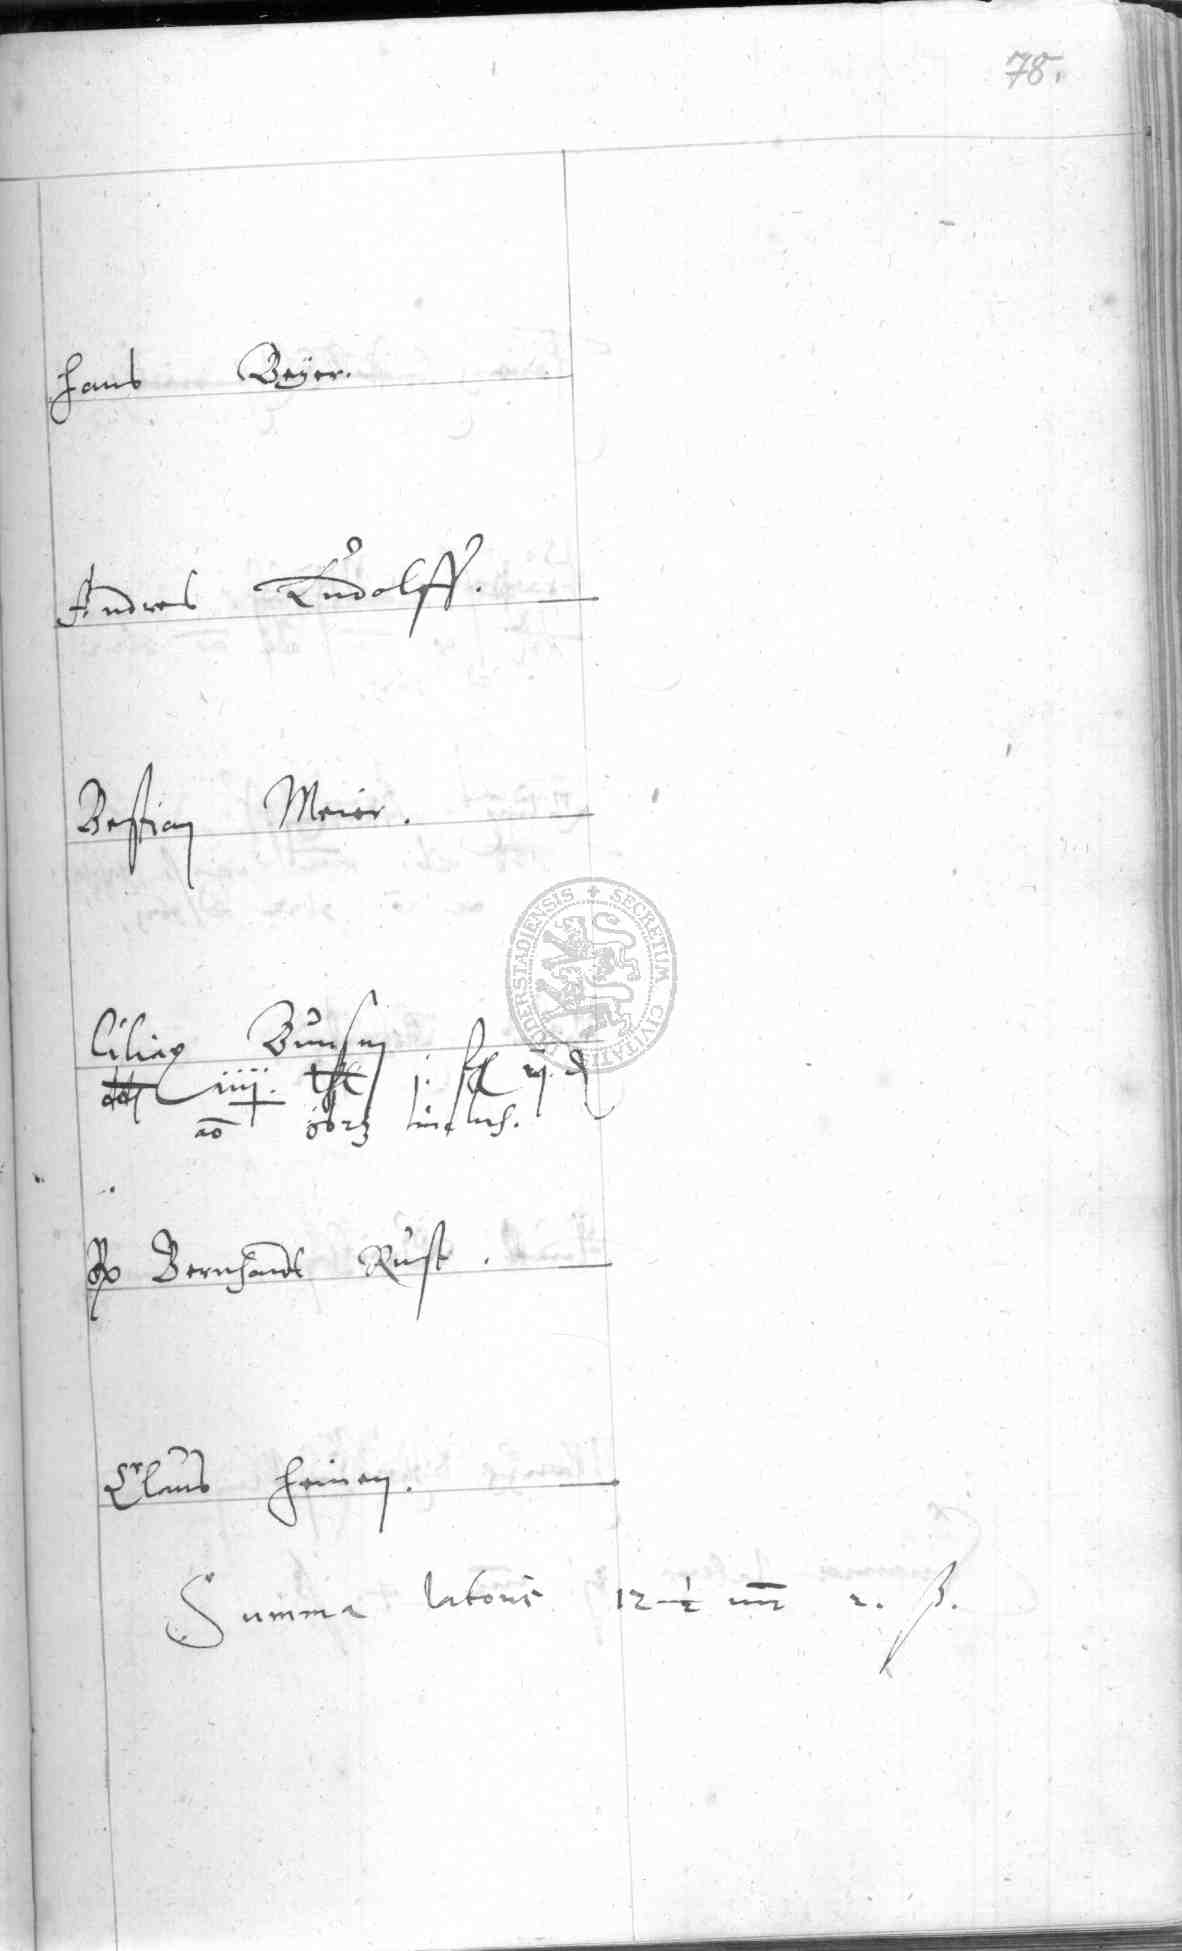 78.
Hans Beÿer.
Andres Rudolff.
Bastian Meier.
Ciliax Bunsen
iiij. j.
ao 1623
Bernhardt Rust.
Claus Heinen.
Summa lateris 12 1/2 2. ß.
SECRETUM CIVITATIS DUDERSTADIENSIS